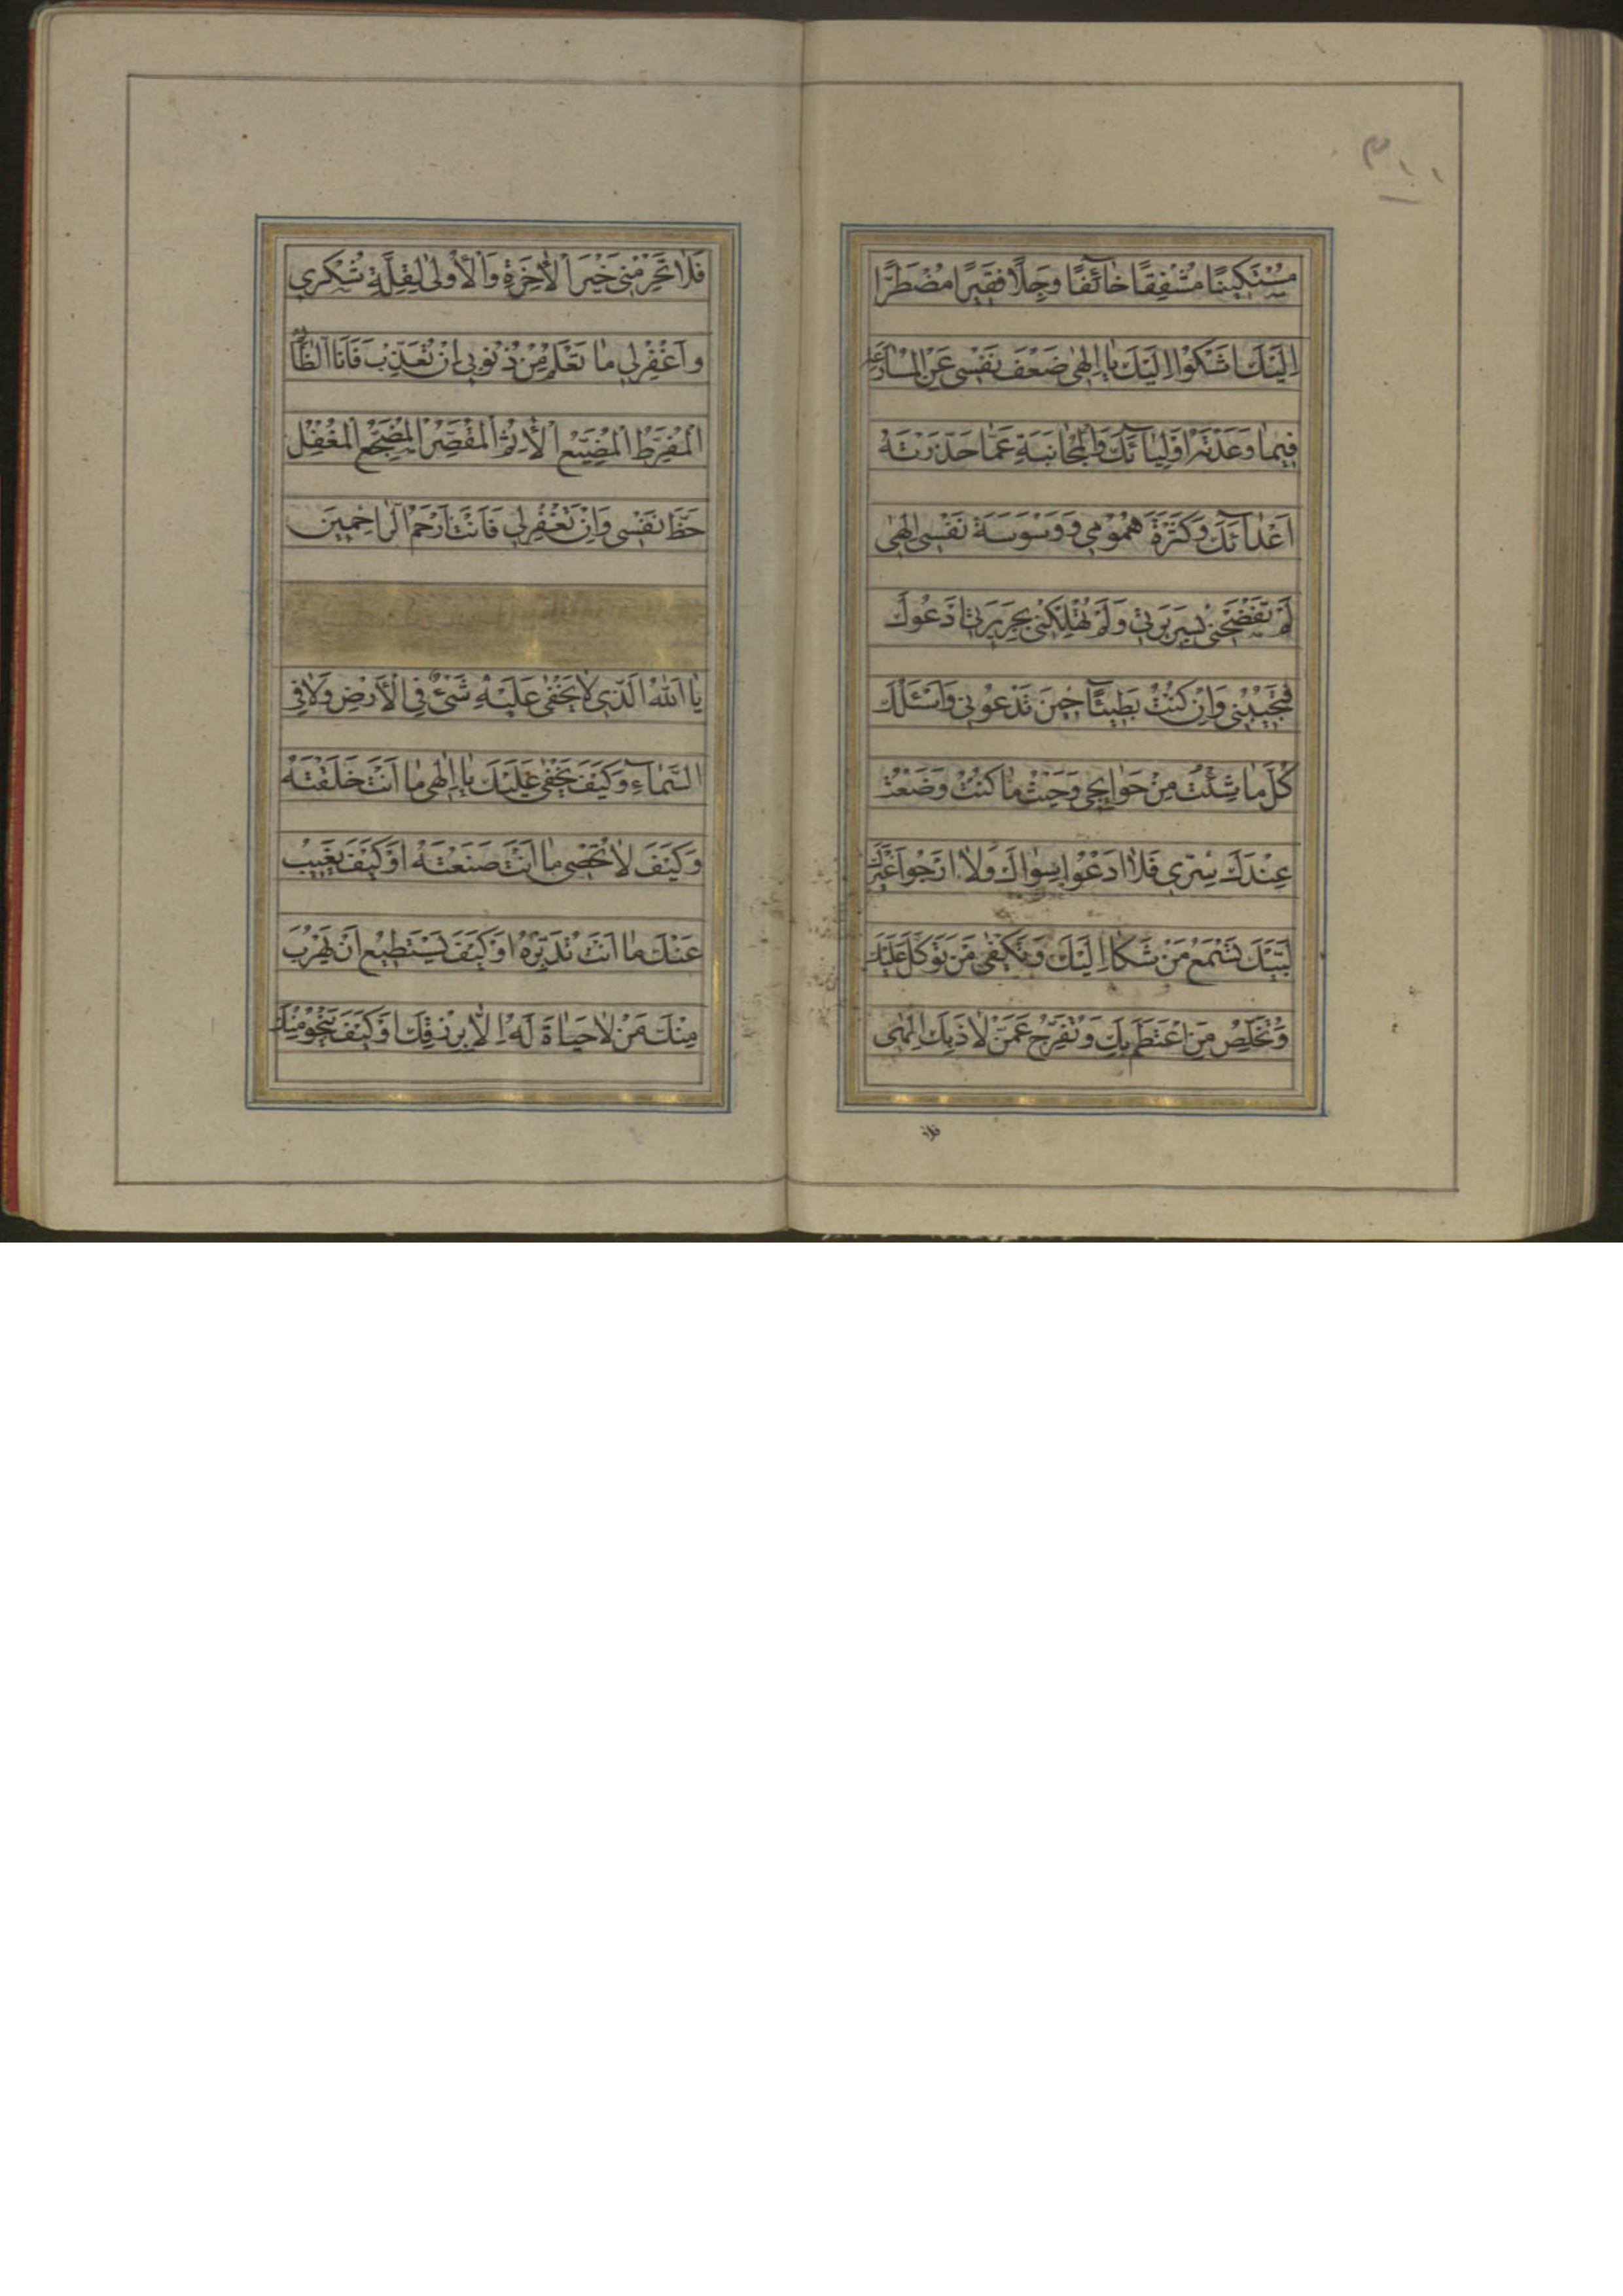 ٢١١
مِسْتَكِينًا مُشْفِقًا خٰآئِفًا وَجِلًا فَقِيرًا مُضْطَرًّا
اِلَيْكَ اَشْكُوا اِلَيْكَ يٰا اِلٰهى ضَعْفَ نَفْسى عَنِ الْمُسٰارَعَةِ
فِيمٰا وَعَدْتَهُ اَوْلِيٰآئَكَ وَالْمُجٰانَبَةِ عَمّٰا حَذَّرْتَهُ
اَعْدٰآئَكَ وَكَثْرَةَ هُمُومِي وَ وَسْوَسَةَ نَفْسِى اِلٰهى
لَمْ تَفْضَحْنى بِسَرِيرَتى وَلَمْ تُهْلِكْنى بِجَرِيرَتى اَدْعُوكَ
فَتُجِيبُنى وَاِنْ كُنْتُ بَطِيئًا حِينَ تَدْعُونى وَاَسْئَلُكَ
كُلَّ مٰا شِئْتُ مِنْ حَوٰايِجى وَحَيْثُ مٰا كُنْتُ وَضَعْتُ
عِنْدَكَ سِرّى فَلٰا اَدْعُوا سِوٰاكَ وَلٰا اَرْجُوا غَيْرَكَ
لَبَّيْكَ تَسْمَعُ مَنْ شَكٰا اِلَيْكَ وَتَكْفى مَنْ تَوَكَّلَ عَلَيْكَ
وَتُخَلِّصُ مَنِ اعْتَصَمَ بِكَ وَتُفَرِّجُ عَمَّنْ لٰاذَ بِكَ اِلٰهى
فلا
فَلٰا تَحْرِمْنى خَيْرَ الْاٰخِرَةِ وَالْاُولٰى لِقِلَّةِ شُكْري
وَاغْفِرْلى مٰا تَعْلَمُ مِنْ ذُنُوبى اِنْ تُعَذِّبْ فَاَنَا الظّٰالِمُ
الْمُفَرِّطُ الْمُضَيِّعُ الْاٰثِمُ الْمُقَصِّرُ الْمُضَجِّعُ الْمُغْفِلُ
حَظَّ نَفْسى وَاِنْ تَغْفِرْلى فَاَنْتَ اَرْحَمُ الرّٰاحِمينَ
يٰا اَللّٰهُ الَّذى لٰا يَخْفٰى عَلَيْهِ شَىْءٌ فِى الْاَرْضِ وَلٰا فِى
السَّمٰآءِ وَكَيْفَ يَخْفٰى عَلَيْكَ يٰا اِلٰهى مٰا اَنْتَ خَلَقْتَهُ
وَكَيْفَ لٰا تُحْصى مٰا اَنْتَ صَنَعْتَهُ اَوْ كَيْفَ يَغِيبُ
عَنْكَ مٰا اَنْتَ تُدَبِّرُهُ اَوْ كَيْفَ يَسْتَطِيعُ اَنْ يَهْرُبَ
مِنْكَ مَنْ لٰا حَيٰاةَ لَهُ اِلّٰا بِرِزْقِكَ اَوْ كَيْفَ يَنْجُو مِنْكَ